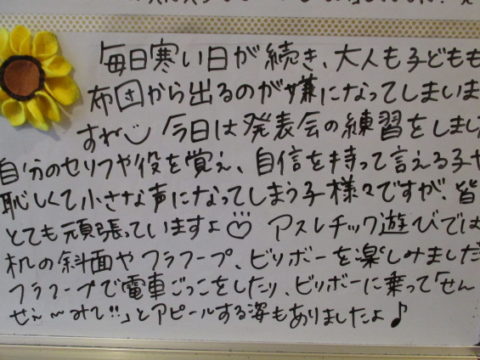 毎日寒い日が続き、大人も子どもも
布団から出るのが嫌になってしまいま
すね 今日は発表会の練習をしまし
自分のセリフや役を覚え、自信を持って言える子や
恥しくて小さな声になってしまう子様々ですが、皆
とても頑張っていますよ♡ アスレチック遊びでは
机の斜面やフラフープ、ビリボーを楽しみました
フラフープで電車ごっこをしたり、ビリボーに乗って「せん
せぇ〜みて!!」とアピールする姿もありましたよ♪